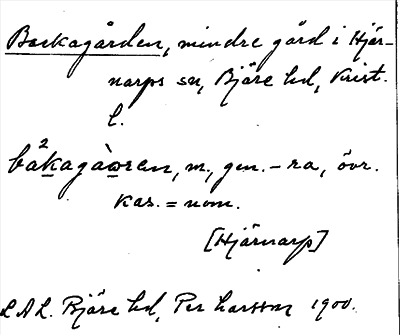 Backagården, mindre gård i Hjär-
narps sn, Bjäre hd, Krist.
l.
bå²kagàѡren, m., gen. – ra, övr.
kas. = nom.
[Hjärnarp]
LAL. Bjäre hd, Per Larsson 1900.